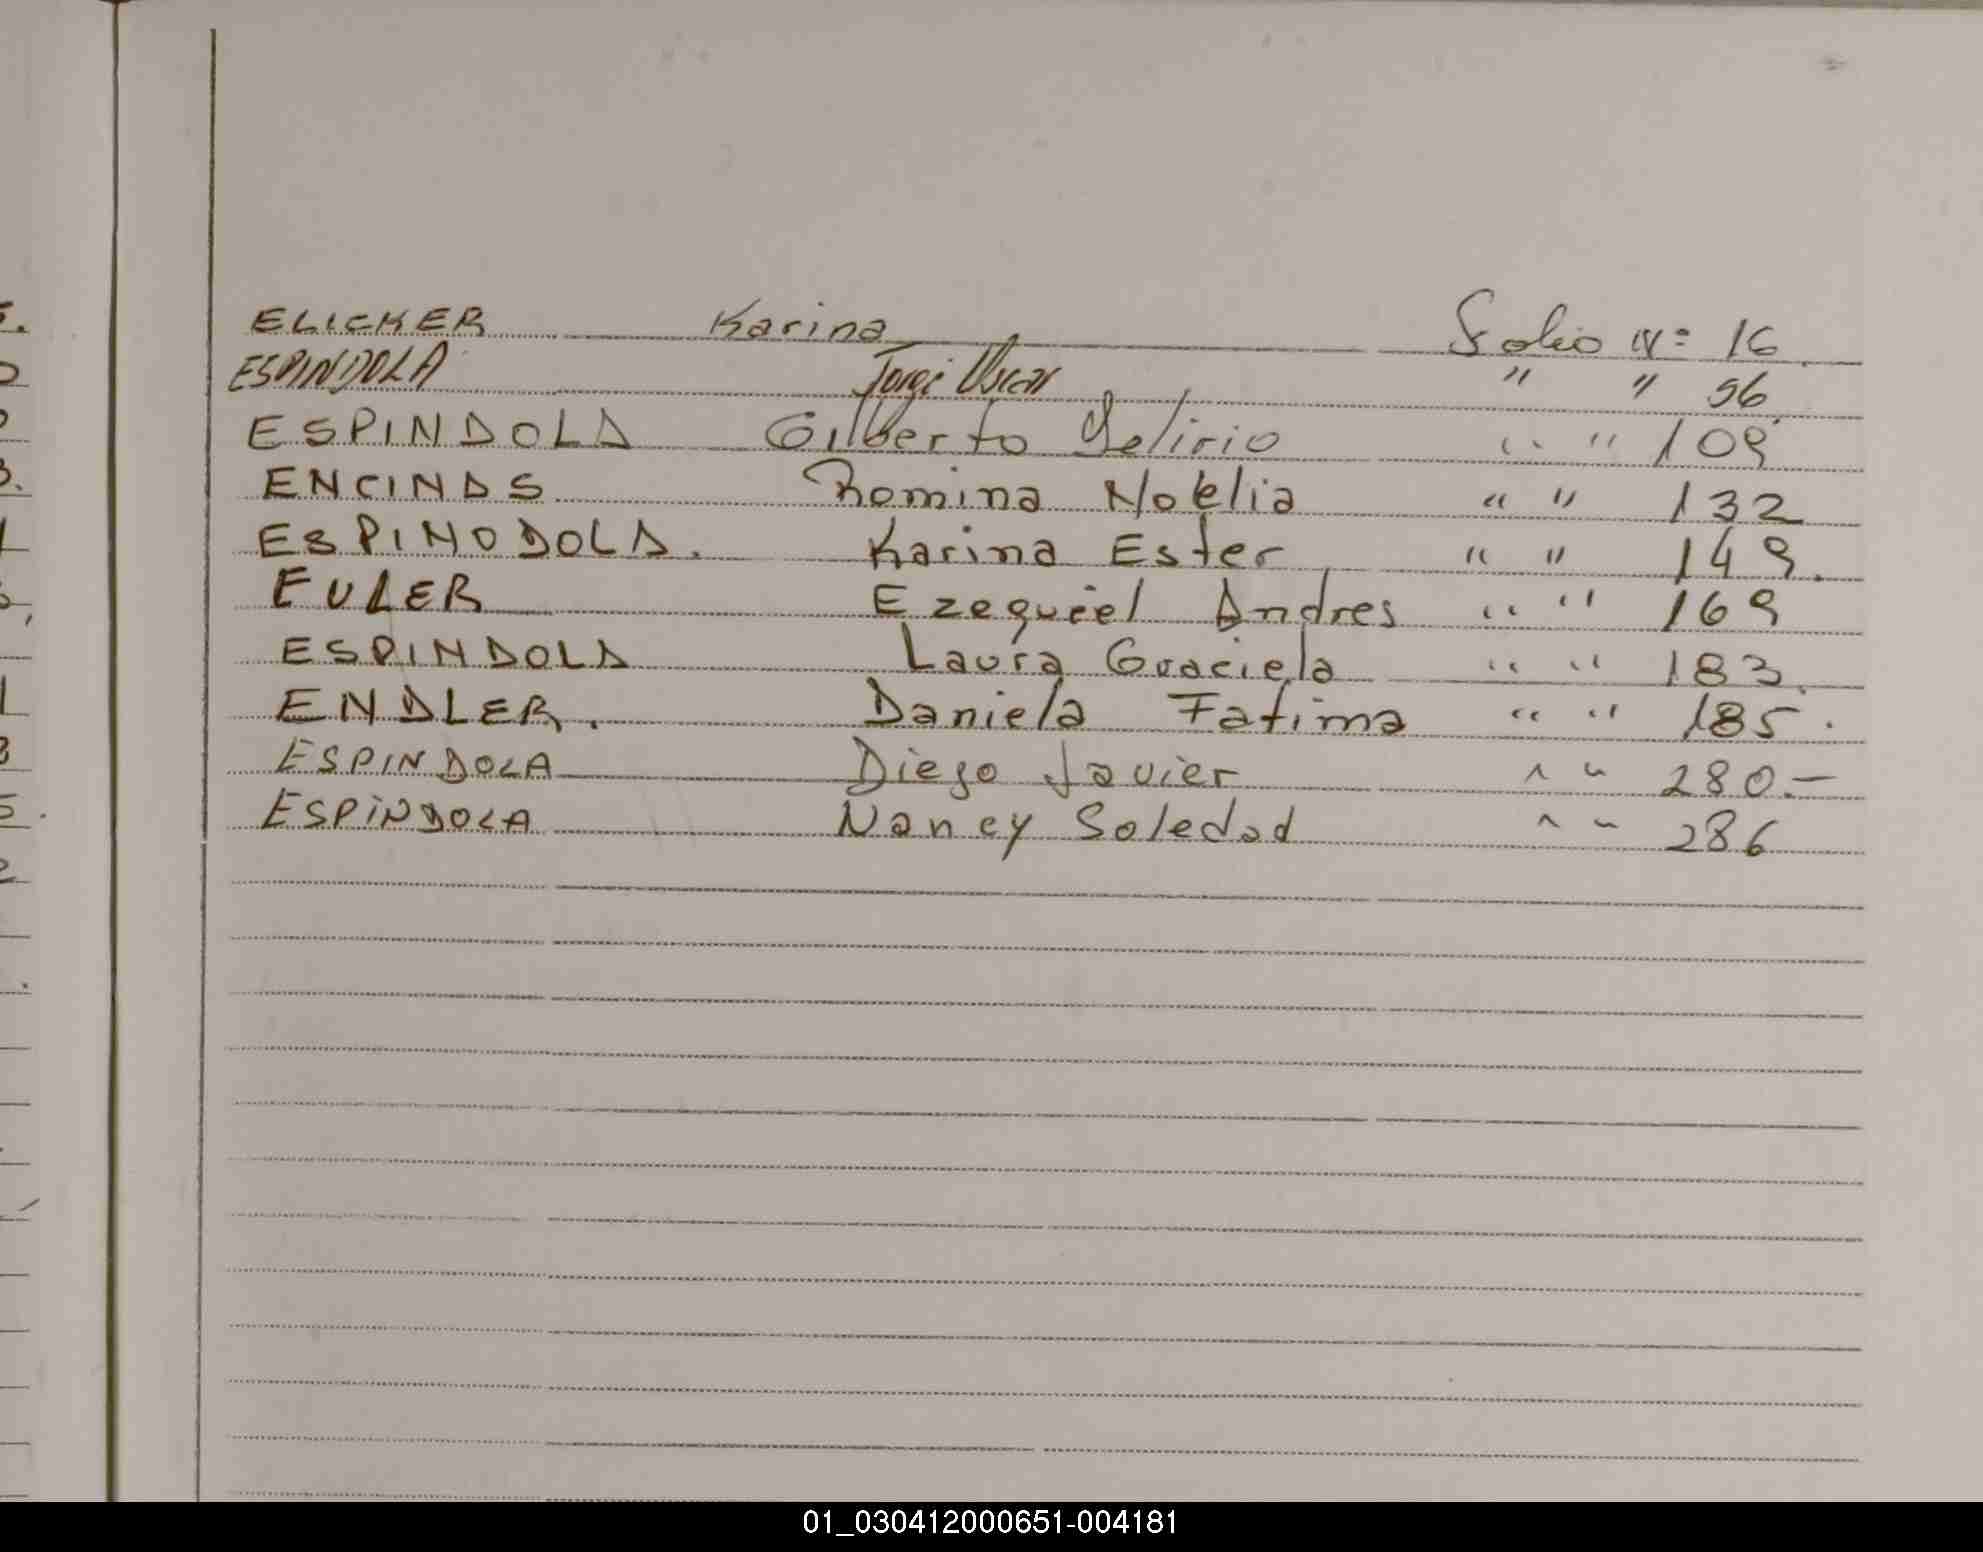 ELICKER Karina Folio Nº 16
ESPINDOLA Jorge Oscar " " 96
ESPINDOLA Gilberto Delirio " " 109
ENCINAS Romina Noelia " " 132
ESPINODOLA. Karina Ester " " 149.
EULER Ezequiel Andres " " 169
ESPINDOLA Laura Graciela " " 183.
ENDLER. Daniela Fatima " " 185.
ESPINDOLA Diego Javier " " 280.-
ESPINDOLA Nancy Soledad " " 286
01_030412000651-004181